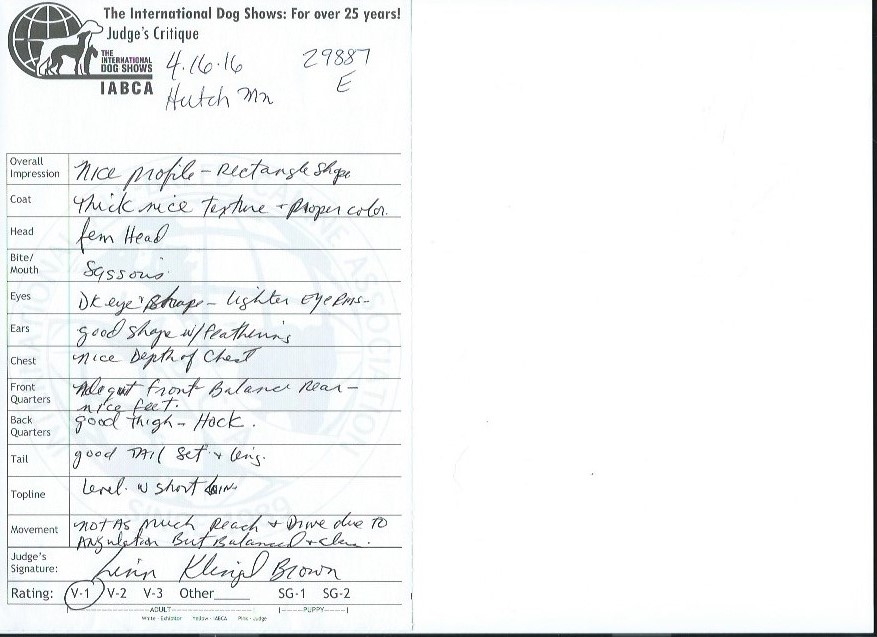 The International Dog Shows: For over 25 years!
Judge's Critique
THE
INTERNATIONAL
DOG SHOWS
IABCA
4.16.16
29887
E
Hutch Mn
Overall Impression nice profile - Rectangle Shape
Coat Thick nice Texture + proper color.
Head fem Head
Bite/Mouth
Eyes DK eye shape - lighter eye Rms -
Ears good shape w/ feathering
Chest nice Depth of Chest
Front Quarters Adequt front Balance Rear -
nice feet.
Back Quarters good Thigh - Hock.
Tail good TAil Set + leng.
Topline Level. w short loin
Movement not As much Reach + Drive due To
Angulation But Balanced + clean.
Judge's Signature: Klingel Brown
Rating: V-1 V-2 V-3 Other_____ SG-1 SG-2
ADULT PUPPY
White - Exhibitor Yellow - IABCA Pink - Judge